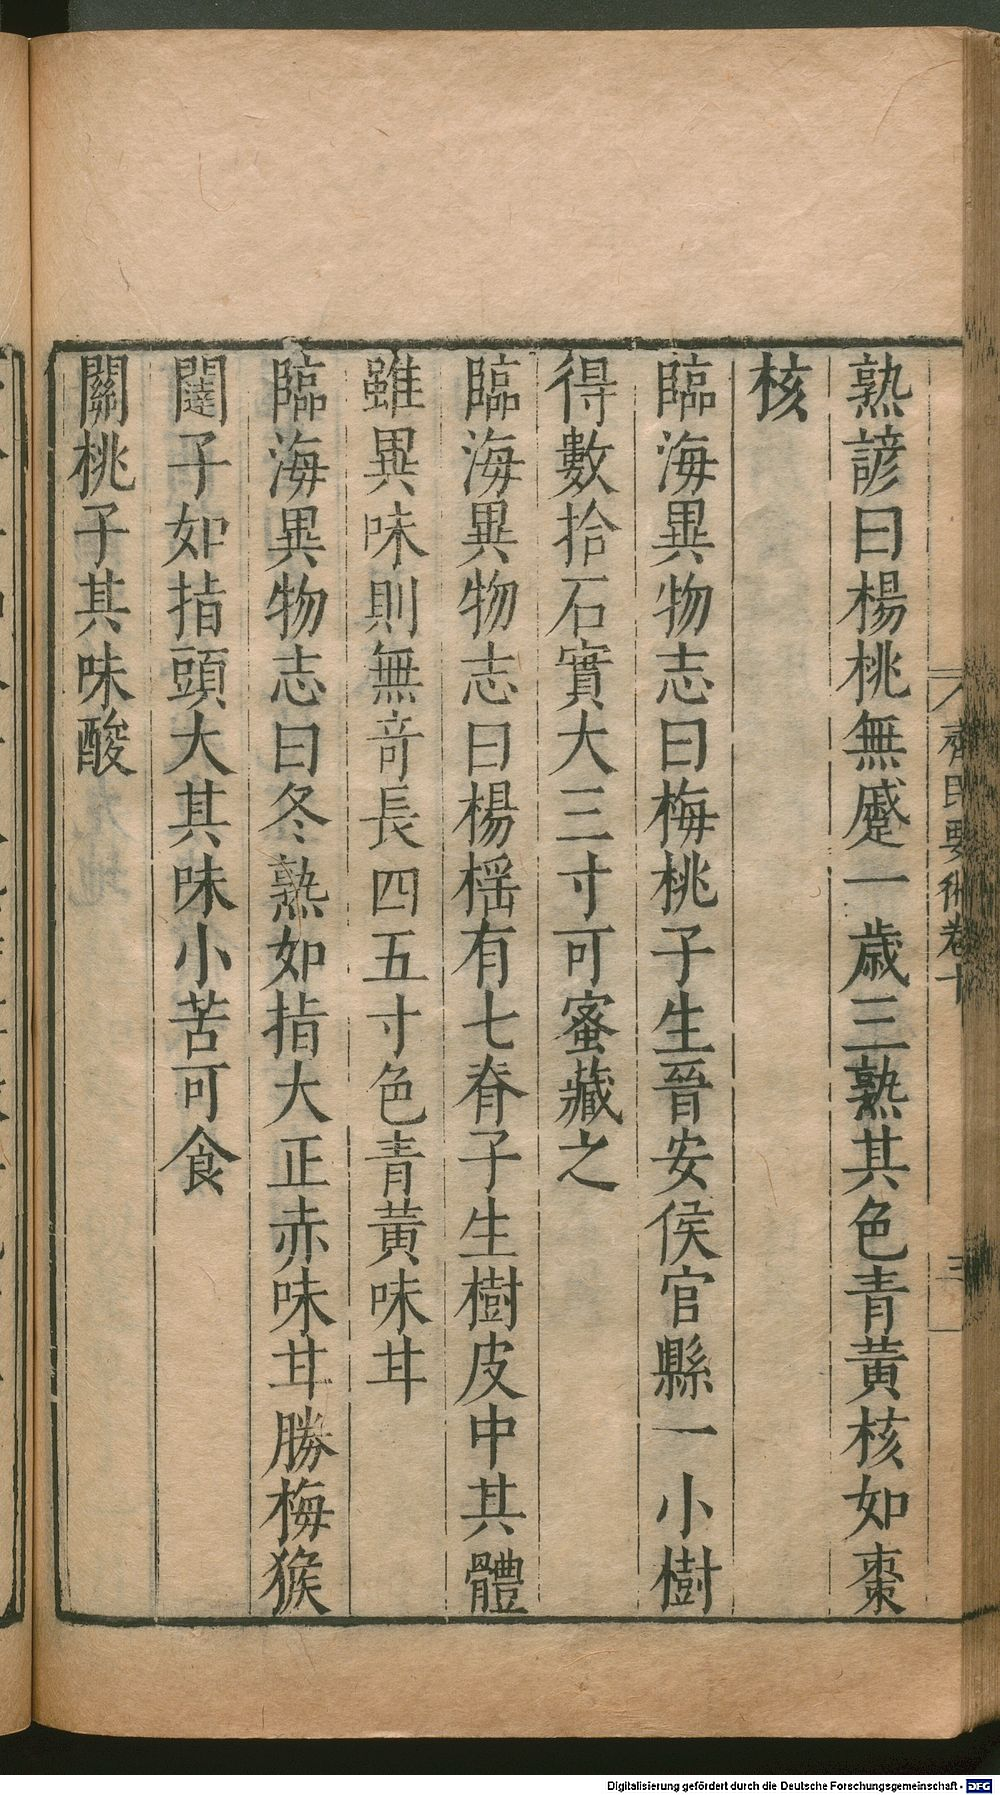 熟諺曰楊桃無蹙一歳三熟其色青黃核如棗
核
臨海異物志曰梅桃子生晉安侯官縣一小樹
得數拾石實大三寸可蜜藏之
臨海異物志曰楊榣有七脊子生樹皮中其體
雖異味則無奇長四五寸色青黃味甘
臨海異物志曰冬熟如指大正赤味甘勝梅猴
闥子如指頭大其味小苦可食
關桃子其味酸
齊民要術卷十
三
Digitalisierung gefördert durch die Deutsche Forschungsgemeinschaft - DFG